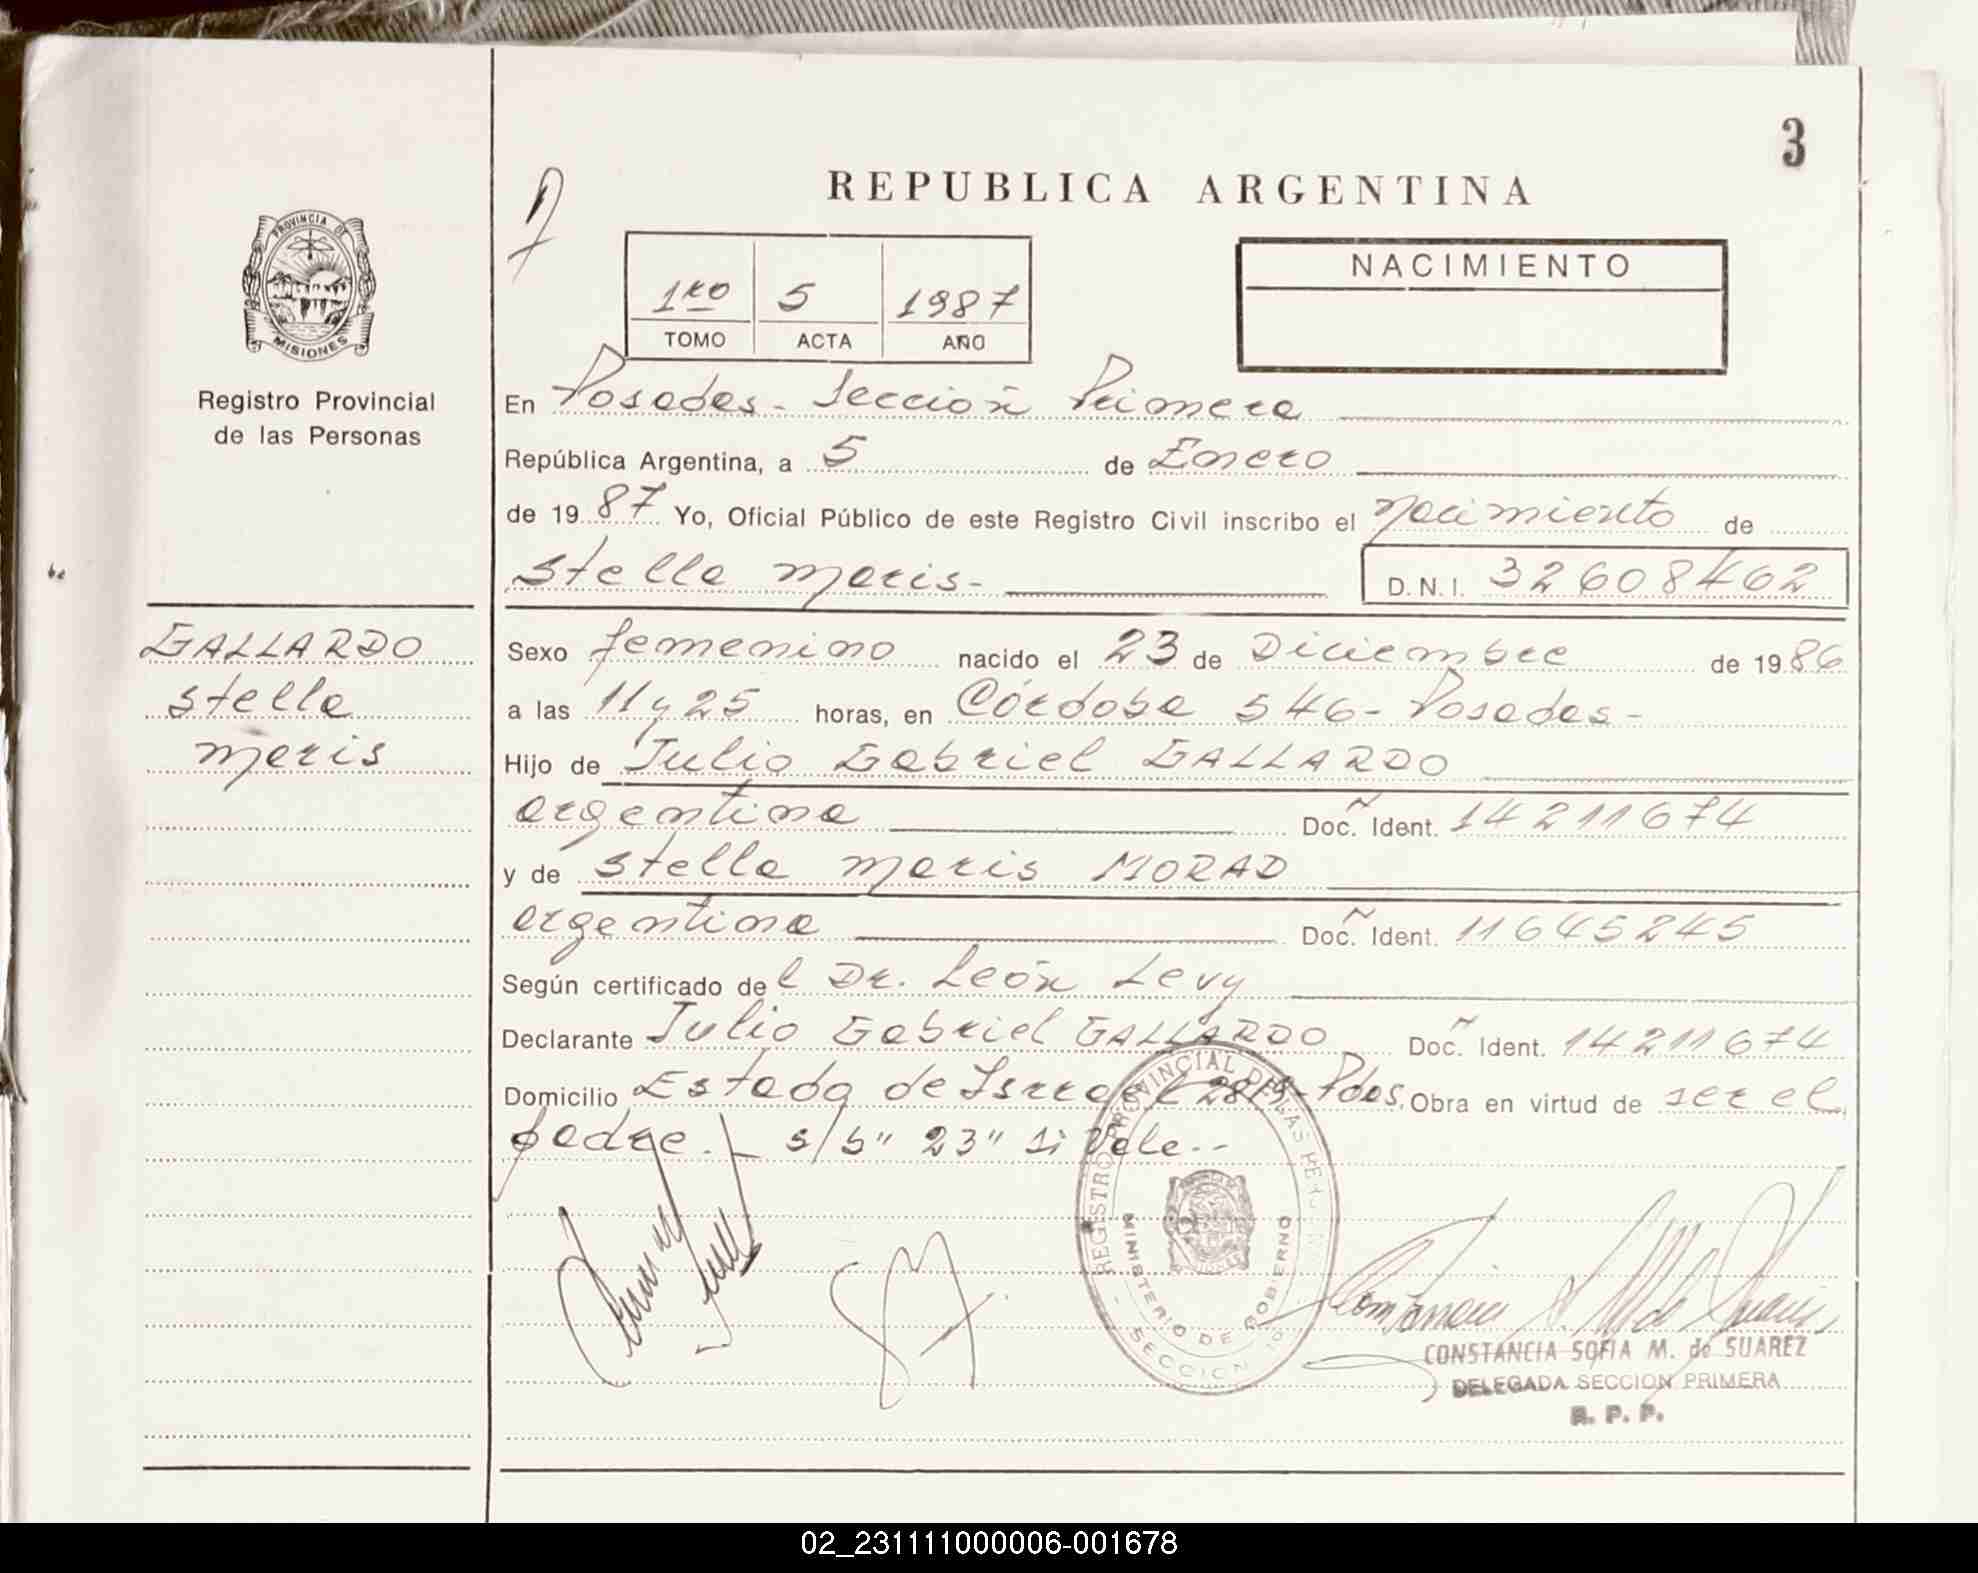 3
REPUBLICA ARGENTINA
PROVINCIA DE
MISIONES
Registro Provincial
de las Personas
1ro 5 1987
TOMO ACTA AÑO
NACIMIENTO
En Posadas - Sección Primera
República Argentina, a 5 de Enero
de 1987 Yo, Oficial Público de este Registro Civil inscribo el Nacimiento de
Stella Maris -
D.N.I. 32608462
GALLARDO
Stella
Maris
Sexo femenino nacido el 23 de Diciembre de 1986
a las 11 y 25 horas, en Córdoba 546 - Posadas -
Hijo de Julio Gabriel GALLARDO
argentina Doc. Ident. 14211674
y de Stella Maris MORAD
argentina Doc. Ident. 11645245
Según certificado del Dr. León Levy
Declarante Julio Gabriel GALLARDO Doc. Ident. 14211674
Domicilio Estado de Israel - Pdas. Obra en virtud de ser el
padre. - s/b " 23 " si Vale. -
REGISTRO PROVINCIAL DE LAS PERSONAS
MINISTERIO DE GOBIERNO
SECCION 1º
CONSTANCIA SOFIA M. de SUAREZ
DELEGADA SECCION PRIMERA
R. P. P.
02_231111000006-001678